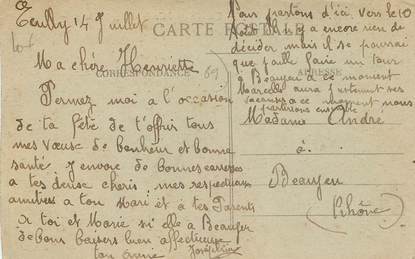 Teully 14 Juillet
CARTE POSTALE
CORRESPONDANCE
ADRESSE
Ma chère Henriette
Permez moi a l'occasion
de ta fête de t'offrir tous
mes vœux de bonheur et bonne
santé. J'envoie de bonnes caresses
a tes deux cheris, mes respectueuses
amitiées a ton Mari et a tes Parents
a toi et Marie si elle a Beaujeu
de bons baisers bien affectueux
ton amie Joséphine
Nous partons d'ici vers le 10
Août il n'y a encore rien de
décider mais il se pourrai
que j'aille faire un tour
a Beaujeu a ce moment
Marcelle aura justement ses
vacances a ce moment nous
partirions ensemble
Madame André
à
Beaujeu
(Rhône)